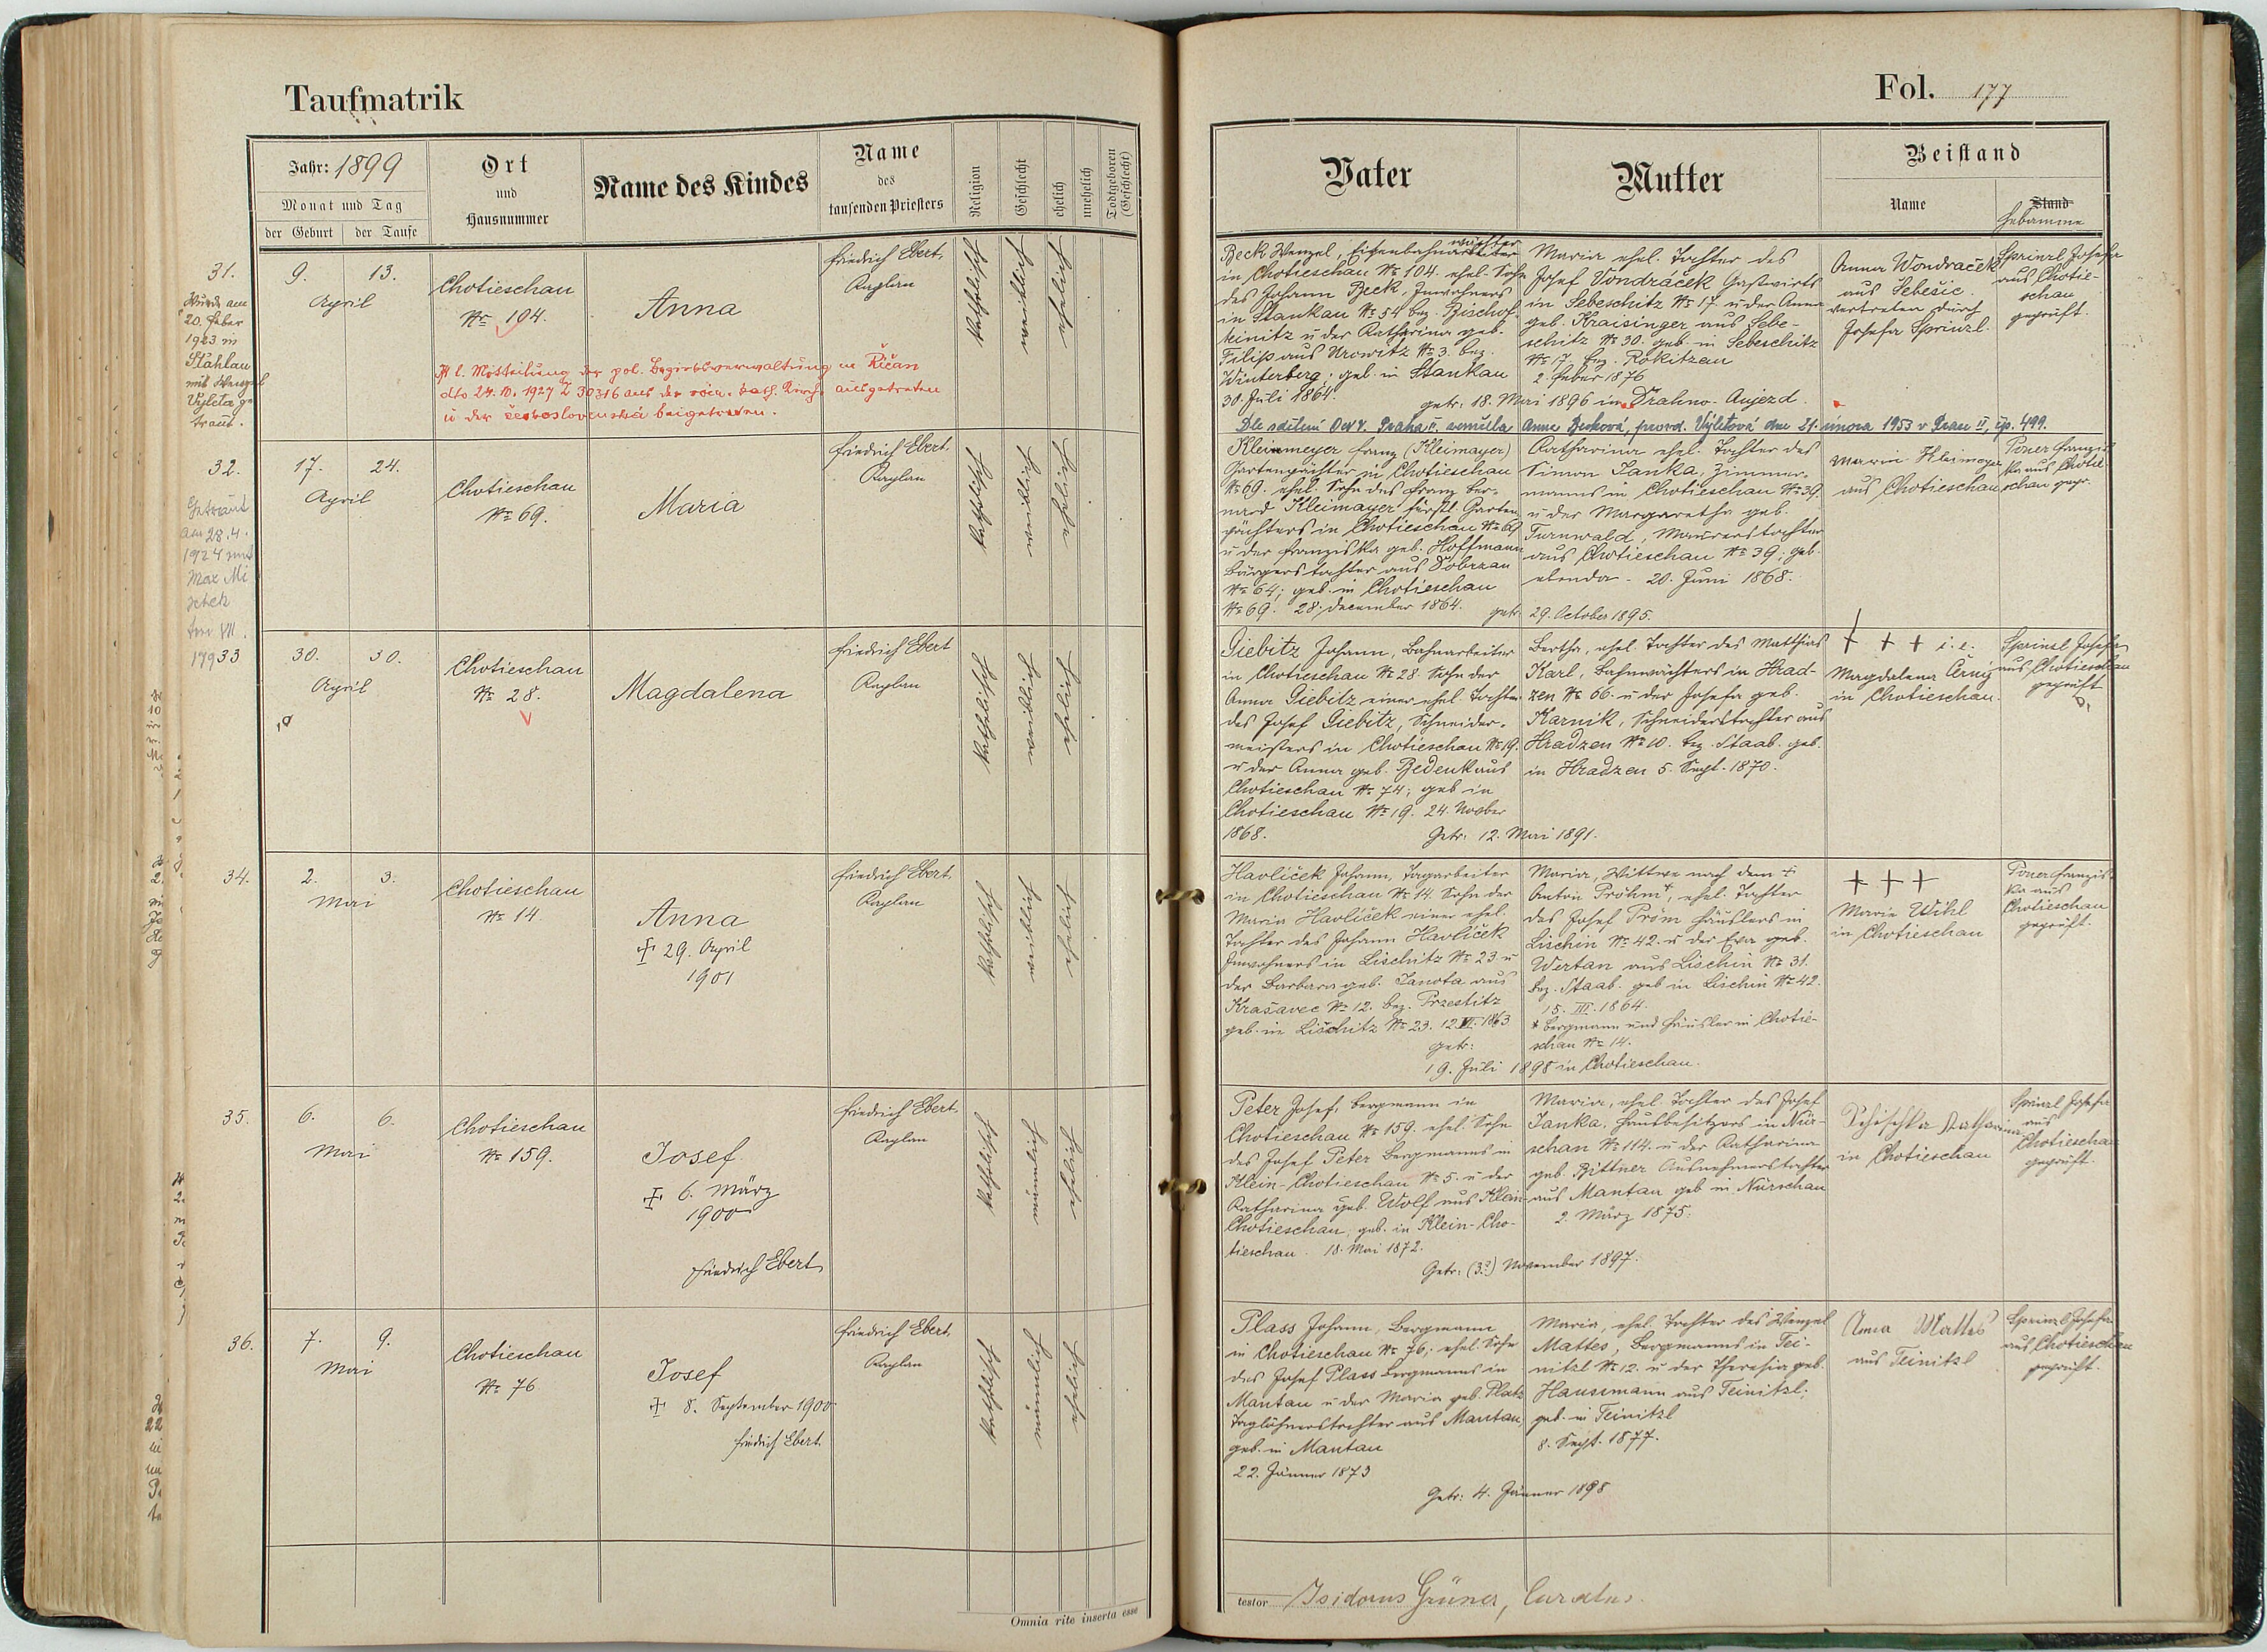 Taufmatrik
Jahr: 1899
Monat und Tag
der Geburt
der Taufe
Ort
und
Hausnummer
Name des Kindes
Name
des
taufenden Priesters
Religion
Geschlecht
ehelich
unehelich
Todtgeboren
(Geschlecht)
31.
Wurde am
20. Feber
1923 in
Stahlau
mit Wenzel
Vyleta ge
traut.
9.
13.
April
Chotieschau
No 104.
Anna
Friedrich Ebert,
Kaplan
katholisch
weiblich
ehelich
Lt. Mitteilung der pol. Bezirksverwaltung in Říčan
dto 24.10.1927 Z 30316 aus der röm. kath. Kirche ausgetreten
u der československá beigetreten.
32.
Getraut
am 28.4.
1924 mit
Max Mi
schek
17.
24.
April
Chotieschau
No 69.
Maria
Friedrich Ebert,
Kaplan
katholisch
weiblich
ehelich
33
30.
30.
April
Chotieschau
No 28.
Magdalena
Friedrich Ebert
Kaplan
katholisch
weiblich
ehelich
34.
2.
3.
Mai
Chotieschau
No 14
Anna
29. April
1901
Friedrich Ebert,
Kaplan
katholisch
weiblich
ehelich
35.
6.
6.
Mai
Chotieschau
No 159.
Josef
6. März
1900
Friedrich Ebert
Friedrich Ebert,
Kaplan
katholisch
männlich
ehelich
36.
7.
9.
Mai
Chotieschau
No 76
Josef
8. September 1900
Friedrich Ebert
Friedrich Ebert,
Kaplan
katholisch
männlich
ehelich
Omnia rite inserta esse
Fol. 177
Vater
Mutter
Beistand
Name
Stand
Hebamme
Beck Wenzel, Eisenbahnwächter
in Chotieschau No 104. ehel. Sohn
des Johann Beck, Inwohners
in Stankau No 54 bez. Bischof-
teinitz u der Katharina geb.
Filip aus Urowitz No 3. bez.
Winterberg; geb. in Stankau
30. Juli 1864.
Maria ehel. Tochter des
Josef Vondráček Gastwirts
in Sebeschitz No 17. u der Anna
geb. Kraisinger aus Sebe-
schitz No 30. geb. in Sebeschitz
No 17. bez. Rokitzan
2. Feber 1876
getr. 18. Mai 1896 in Drahno-Aujezd.
Anna Wondraček
aus Sebešic
vertreten durch
Josefa Sprinzl.
Sprinzl Josefa
aus Chotie-
schau
geprüft.
Dle sdělení Praha II. zemřela Anna Becková, provd. Výletová dne 21. února 1953 v Praze II, čp. 499.
Kleinmeyer Franz (Kleimayer)
Gartenpächter in Chotieschau
No 69. ehel. Sohn des Franz Ber-
nard Kleimayer fürstl. Garten-
pächters in Chotieschau No 69
u der Franziska geb. Hoffmann
Bürgerstochter aus Dobrzan
No 64; geb. in Chotieschau
No 69. 28. December 1864.
Katharina ehel. Tochter des
Simon Janka, Zimmer-
manns in Chotieschau No 39.
u der Margaretha geb.
Turnwald, Maurerstochter
aus Chotieschau No 39; geb.
ebenda. 20. Juni 1868.
getr. 29. October 1895.
Maria Kleimayer
aus Chotieschau
Poner Franzis
ka aus Chotie
schau gepr.
Giebitz Johann, Bahnarbeiter
in Chotieschau No 28 Sohn der
Anna Giebitz einer ehel. Tochter
des Josef Giebitz, Schneider-
meisters in Chotieschau No 19.
u der Anna geb. Bedenk aus
Chotieschau No 74; geb in
Chotieschau No 19. 24. Novber
1868.
Bertha, ehel. Tochter des Matthias
Karl, Bahnwächters in Hrad-
zen No 66. u der Josefa geb.
Karnik, Schneiderstochter aus
Hradzen No 10. bez. Staab. geb.
in Hradzen 5. Sept. 1870.
Getr: 12. Mai 1891.
+ + + i. e.
Magdalena Černý
in Chotieschau.
Sprinzl Josefa
aus Chotieschau
geprüft
Havlíček Johann, Tagarbeiter
in Chotieschau No 14. Sohn der
Maria Havlíček einer ehel.
Tochter des Johann Havlíček
Inwohners in Lischitz No 23 u
der Barbara geb. Janota aus
Krašavec No 12. bez. Przestitz
geb. in Lischitz No 23. 12. VI. 1863
Maria, Wittwe nach dem +
Anton Pröhm, ehel. Tochter
des Josef Pröm Häuslers in
Lischin No 42. u der Eva geb.
Wertan aus Lischin No 31.
bez. Staab. geb in Lischin No 42.
15. III. 1864.
* Bergmann und Häusler in Chotie-
schau No 14.
getr:
19. Juli 1898 in Chotieschau.
+++
Marie Wihl
in Chotieschau
Poner Franzis
ka aus
Chotieschau
geprüft.
Peter Josef, Bergmann in
Chotieschau No 159. ehel. Sohn
des Josef Peter Bergmanns in
Klein-Chotieschau No 5. u der
Katharina geb. Wolf aus Klein-
Chotieschau, geb. in Klein-Cho-
tieschau. 18. Mai 1872.
Maria, ehel. Tochter des Josef
Janka, Hausbesitzers in Nür-
schan No 114. u der Katharina
geb. Bittner Ausnehmerstochter
aus Mantau geb in Nürschan
2. März 1875.
Getr: (3?) November 1897.
Katharina
in Chotieschau
Sprinzl Josefa
aus
Chotieschau
geprüft.
Plass Johann, Bergmann
in Chotieschau No 76; ehel. Sohn
des Josef Plass Bergmanns in
Mantau u der Maria geb. Platz
Taglöhnerstochter aus Mantau,
geb. in Mantau
22. Jänner 1873
Maria, ehel. Tochter des Wenzel
Mattes, Bergmanns in Tei-
nitzl No 12. u der Theresia geb.
Haussmann aus Teinitzl;
geb. in Teinitzl
8. Sept. 1877.
Getr: 4. Jänner 1898
Anna Mattes
aus Teinitzl
Sprinzl Josefa
aus Chotieschau
geprüft.
testor Isidorus Grüner, Curatus.